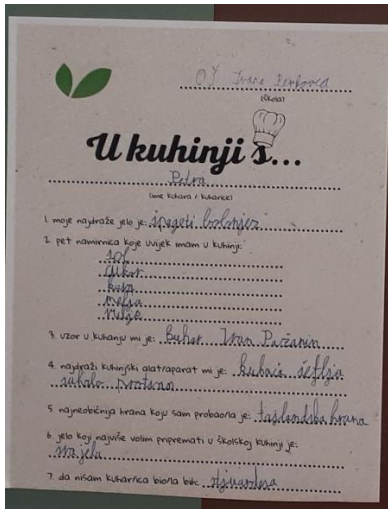 OŠ Ivana Perkovca
(škola)
U kuhinji s...
Petra
(ime kuhara / kuharice)
1. moje najdraže jelo je: špageti bolonjez
2. pet namirnica koje uvijek imam u kuhinji:
sol
šikar
3. uzor u kuhanju mi je: kuhar Ivan Pažanin
4. najdraži kuhinjski alat/aparat mi je: kuhača šeflja
5. najneobičnija hrana koju sam probao/la je: tajlandska hrana
6. jelo koji najviše volim pripremati u školskoj kuhinji je:
sva jela
7. da nisam kuhar/ica bio/la bih: stjuardesa